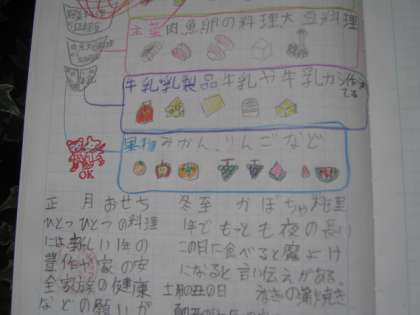 主菜 肉魚卵の料理大豆料理
牛乳乳製品牛乳や牛乳から作ってる
果物 みかん、りんごなど
OK
正月おせち
ひとつひとつの料理
には新しい年の
豊作や家の安
全家族の健康
などの願いが
冬至 かぼちゃ料理
1年でもっとも夜の長い
この日に食べると魔よけ
になると言い伝えがある。
土用の丑の日 うなぎの蒲焼き